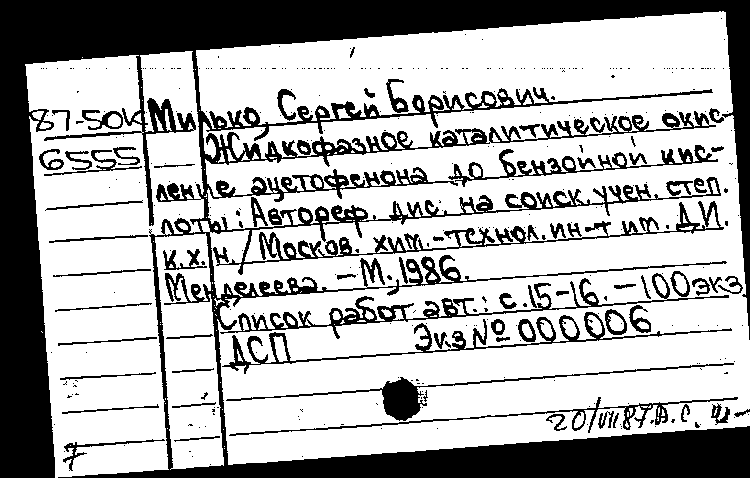 87-50К Милько, Сергей Борисович.
6555 Жидкофазное каталитическое окис-
ление ацетофенона до бензойной кис-
лоты: Автореф. дис. на соиск. учен. степ.
к.х.н. / Москов. хим.-технол. ин-т им. Д.И.
Менделеева. - М., 1986.
Список работ авт.: с. 15-16. - 100 экз.
ДСП Экз № 000006.
20/VII 87. А.С.
7